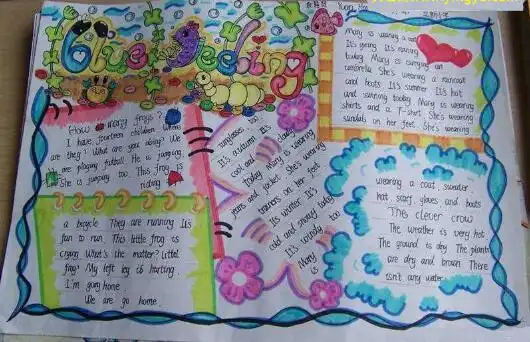 Blue Feeling
How many frogs?
I have fourteen children Where
are they? What are you doing? We
are playing futball. He is jumping
She is jumping too. This frog is
riding
a bicycle They are running It's
fun to run. This little frog is
crying What's the matter? Little
frog? My left leg is harting
I'm going home
We are go home.
sunglasses too
It's autumn It's
cool and today
today Mary is wearing
jeans and jacket She's wearing
trainers on her feet
It's winter It's
cold and snowy today
It's windy too
Mary
is
Mary is wearing a
It's spring It's raining
today Mary is carrying an
umbrella She's wearing a raincoat
and boots It's summer It's hot
and sunning today Mary is wearing
shorts and a T-shirt She's wearing
sandals on her feet She's wearing
wearing a coat, sweater
hat scarf gloves and boots
The clever crow
The weather is very hot
The ground is dry The plants
are dry and brown There
isn't any water